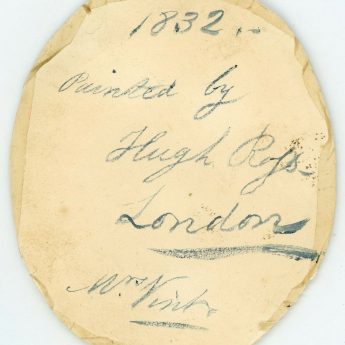 1832.-
Painted by
Hugh Ross
London
Mrs Vink.